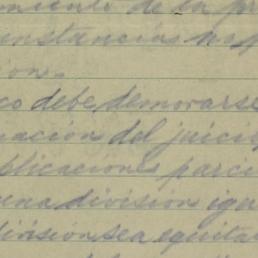 miento de la pr
unstancias no p
ion.
co debe demorarse
ación del juici
blicaciones parci
una division igu
division sea equita